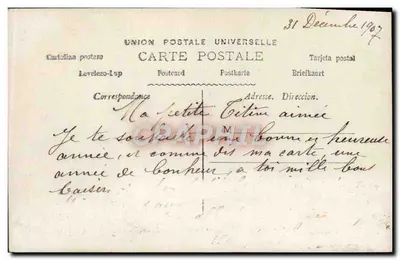 31 Décembre 1907
UNION POSTALE UNIVERSELLE
Cartolina postale CARTE POSTALE Tarjeta postal
Levelezo-Lap Postcard Postkarte Briefkaart
Correspondance Adresse. Direccion.
Ma petite aimée
Je te souhaite une bonne et heureuse
année, et comme dis ma carte, une
année de bonheur, a toi mille bons
baisers